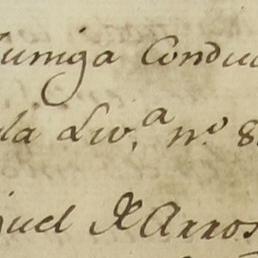 uniga Conduc
la Liv.ª n.º 8
uel de Arros